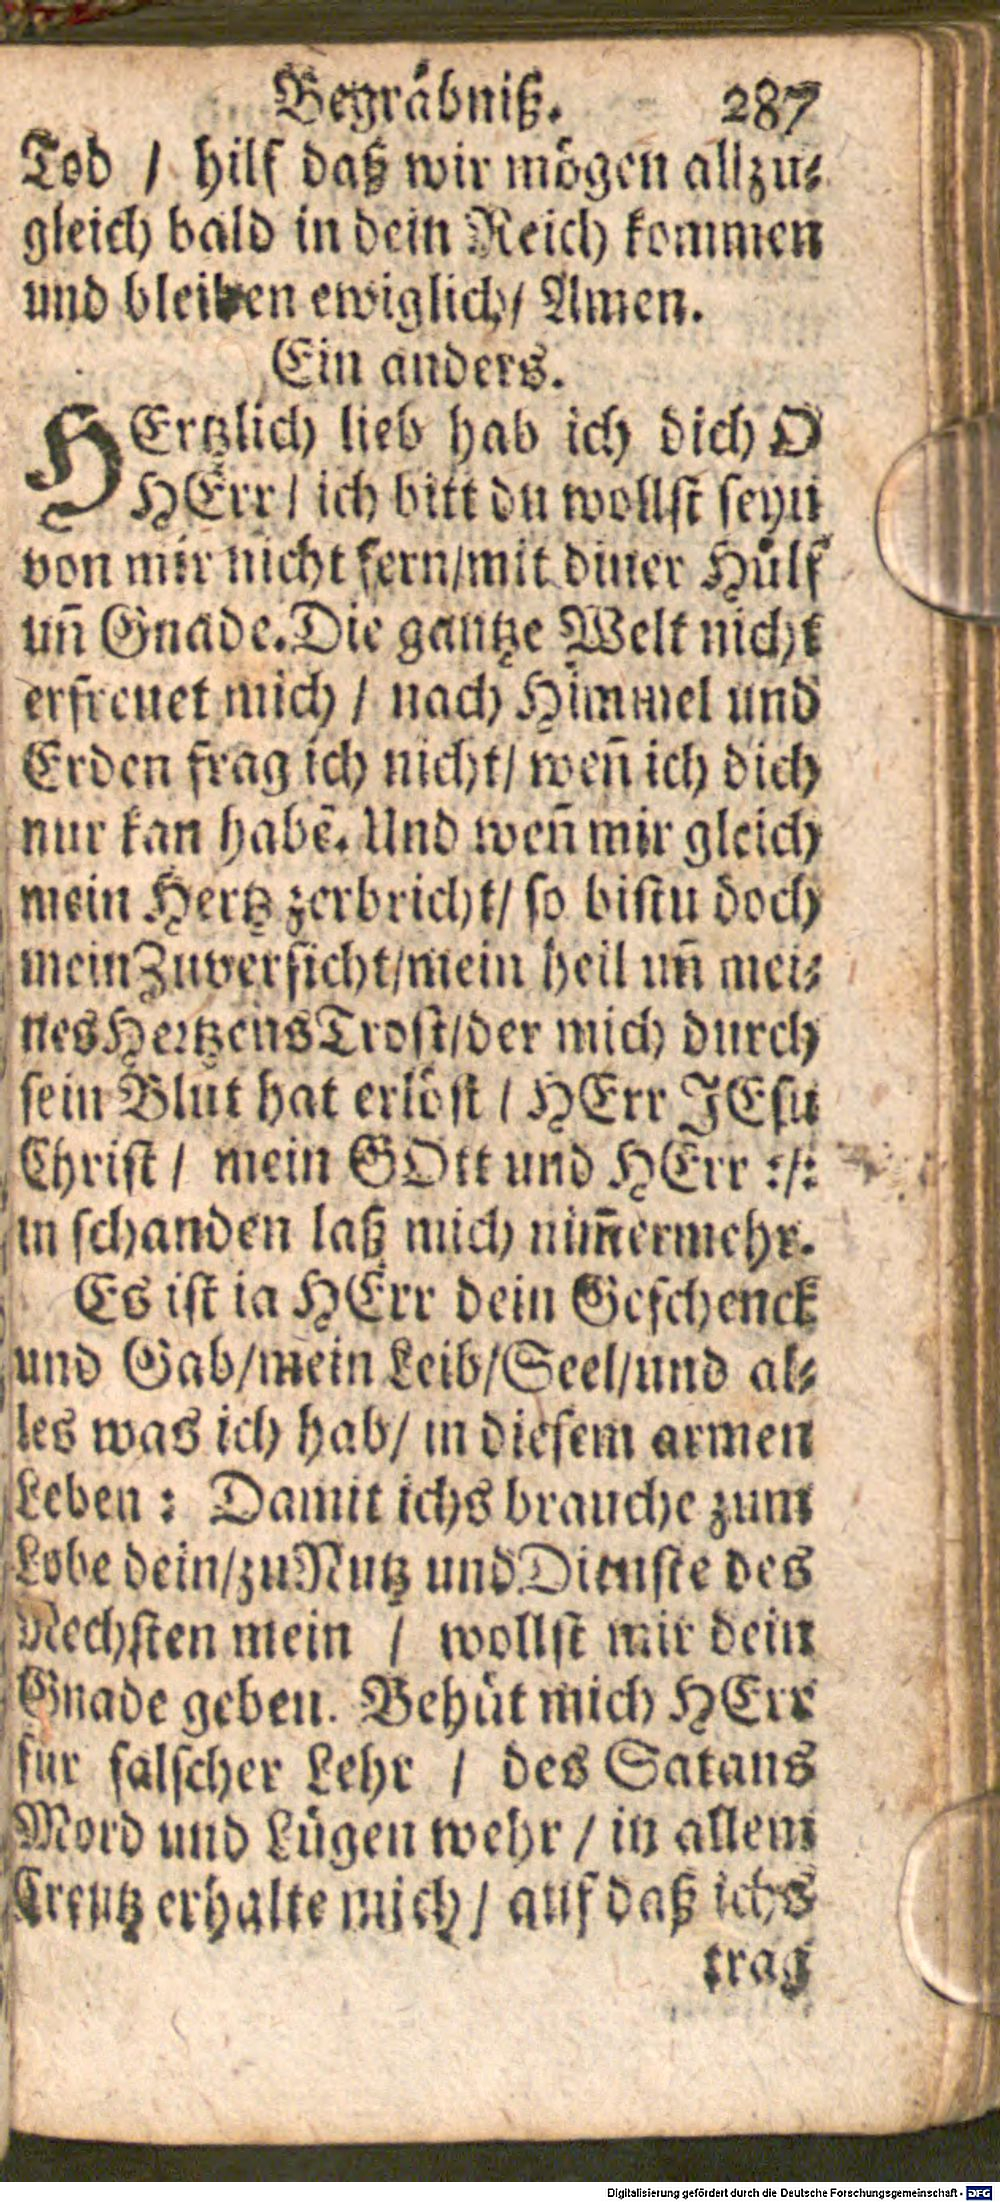 Begräbniß. 287
Tod / hilf daß wir mögen allzu⸗
gleich bald in dein Reich kommen
und bleiben ewiglich/ Amen.
Ein anders.
HErtzlich lieb hab ich dich O
HErr / ich bitt du wollst seyn
von mir nicht fern/mit diner Hülf
uñ Gnade. Die gantze Welt nicht
erfreuet mich / nach Himmel und
Erden frag ich nicht/ weñ ich dich
nur kan habẽ. Und weñ mir gleich
mein Hertz zerbricht/ so bistu doch
mein Zuversicht/mein heil uñ mei⸗
nes Hertzens Trost/der mich durch
sein Blut hat erlöst / HErr JEsu
Christ / mein GOtt und HErr :/:
in schanden laß mich nim̃ermehr.
Es ist ia HErr dein Geschenck
und Gab/mein Leib/Seel/und al⸗
les was ich hab/ in diesem armen
Leben : Damit ichs brauche zum
Lobe dein/zu Nutz und Dienste des
Nechsten mein / wollst mir dein
Gnade geben. Behüt mich HErr
für falscher Lehr / des Satans
Mord und Lügen wehr / in allem
Creutz erhalte mich/ auf daß ichs
trag
Digitalisierung gefördert durch die Deutsche Forschungsgemeinschaft - DFG